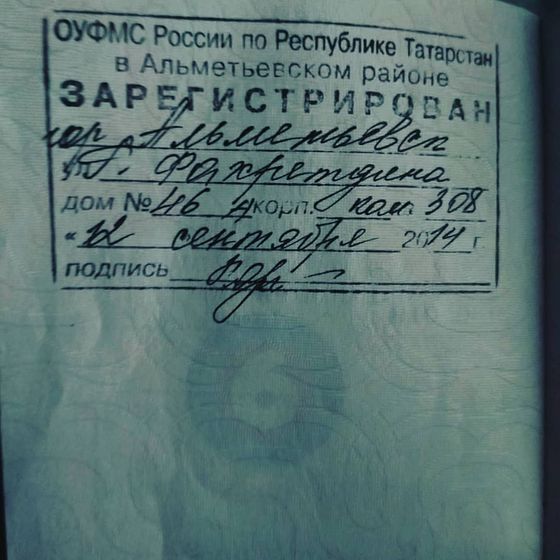 ОУФМС России по Республике Татарстан
в Альметьевском районе
ЗАРЕГИСТРИРОВАН
гор Альметьевск
ул. Фахретдина
дом № 46 А корп. ком. 308
"12 сентября 2014 г.
подпись